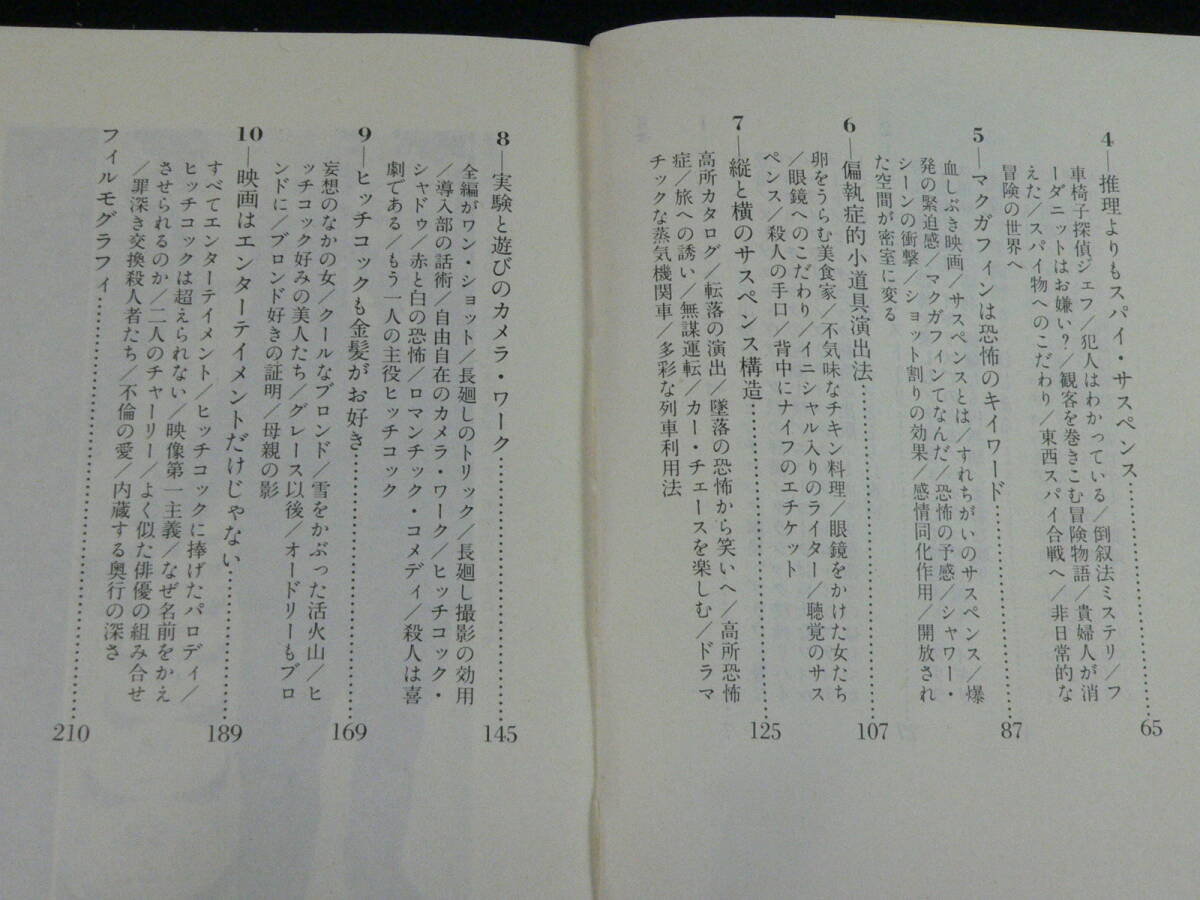 4—推理よりもスパイ・サスペンス……………65
車椅子探偵ジェフ/犯人はわかっている/倒叙法ミステリ/フ
ーダニットはお嫌い?/観客を巻きこむ冒険物語/貴婦人が消
えた/スパイ物へのこだわり/東西スパイ合戦へ/非日常的な
冒険の世界へ
5—マクガフィンは恐怖のキイワード……………87
血しぶき映画/サスペンスとは/すれちがいのサスペンス/爆
発の緊迫感/マクガフィンてなんだ/恐怖の予感/シャワー・
シーンの衝撃/ショット割りの効果/感情同化作用/開放され
た空間が密室に変る
6—偏執症的小道具演出法……………107
卵をうらむ美食家/不気味なチキン料理/眼鏡をかけた女たち
/眼鏡へのこだわり/イニシャル入りのライター/聴覚のサス
ペンス/殺人の手口/背中にナイフのエチケット
7—縦と横のサスペンス構造……………125
高所カタログ/転落の演出/墜落の恐怖から笑いへ/高所恐怖
症/旅への誘い/無謀運転/カー・チェースを楽しむ/ドラマ
チックな蒸気機関車/多彩な列車利用法
8—実験と遊びのカメラ・ワーク……………145
全編がワン・ショット/長廻しのトリック/長廻し撮影の効用
/導入部の話術/自由自在のカメラ・ワーク/ヒッチコック・
シャドゥ/赤と白の恐怖/ロマンチック・コメディ/殺人は喜
劇である/もう一人の主役ヒッチコック
9—ヒッチコックも金髪がお好き……………169
妄想のなかの女/クールなブロンド/雪をかぶった活火山/ヒ
ッチコック好みの美人たち/グレース以後/オードリーもブロ
ンドに/ブロンド好きの証明/母親の影
10—映画はエンターテイメントだけじゃない……………189
すべてエンターテイメント/ヒッチコックに捧げたパロディ/
ヒッチコックは超えられない/映像第一主義/なぜ名前をかえ
させられるのか/二人のチャーリー/よく似た俳優の組み合せ
/罪深き交換殺人者たち/不倫の愛/内蔵する奥行の深さ
フィルモグラフィ……………210